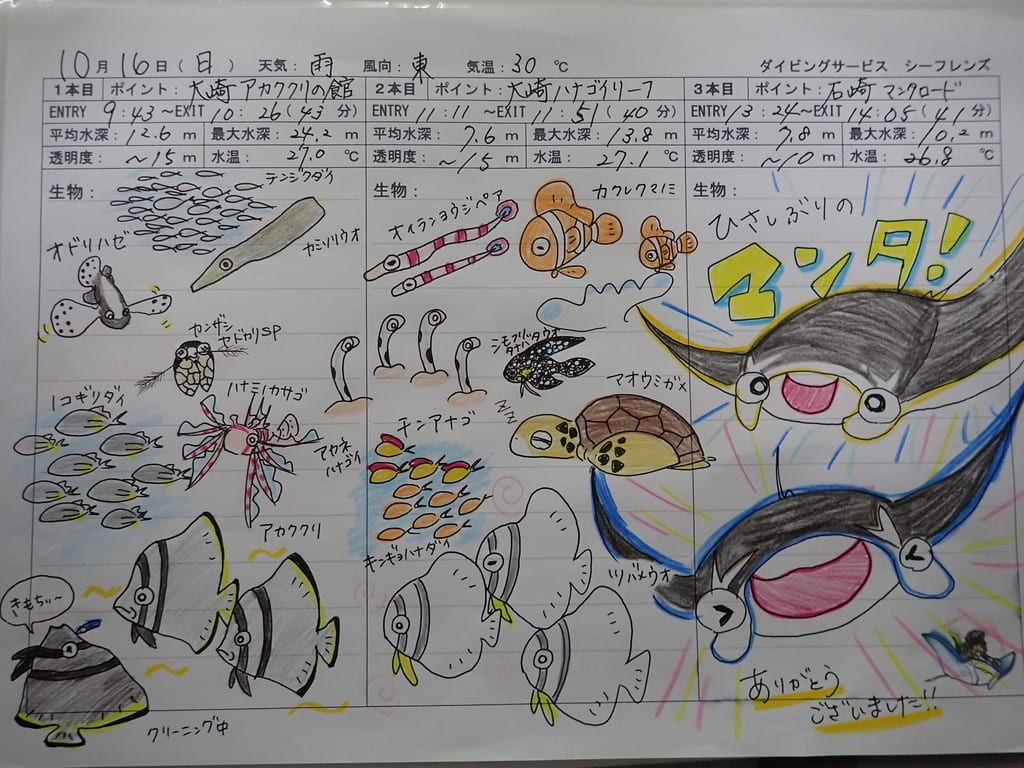 10月16日(日) 天気:雨 風向:東 気温:30℃ ダイビングサービス シーフレンズ
1本目 ポイント:大崎アカククリの館
ENTRY 9:43~EXIT 10:26(43分)
平均水深:12.6m 最大水深:24.2m
透明度:~15m 水温:27.0℃
生物:
テンジクダイ
オドリハゼ
カミソリウオ
カンザシ
ヤドカリSP
ノコギリダイ
ハナミノカサゴ
アカククリ
きもちぃ~
クリーニング中
2本目 ポイント:大崎ハナゴイリーフ
ENTRY 11:11~EXIT 11:51(40分)
平均水深:7.6m 最大水深:13.8m
透明度:~15m 水温:27.1℃
生物:
オイランヨウジペア
カクレクマノミ
チンアナゴ
アオウミガメ
zzz
アカネ
ハナゴイ
キンギョハナダイ
ツバメウオ
3本目 ポイント:石崎マンタロード
ENTRY 13:24~EXIT 14:05(41分)
平均水深:7.8m 最大水深:10.2m
透明度:~10m 水温:26.8℃
生物:
ひさしぶりの
マンタ!
ありがとう
ございました!!